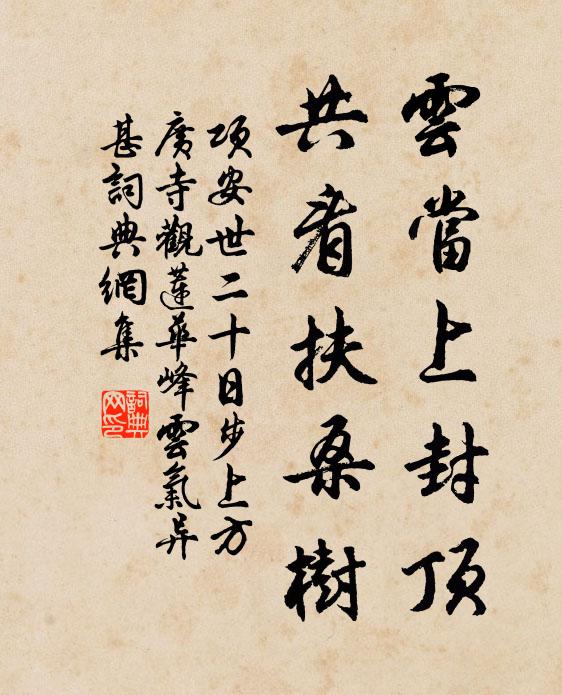 雲當上封頂
共看扶桑樹
項安世二十日步上方
廣寺觀蓮華峰雲氣异
甚詞典網集
詞典
网印